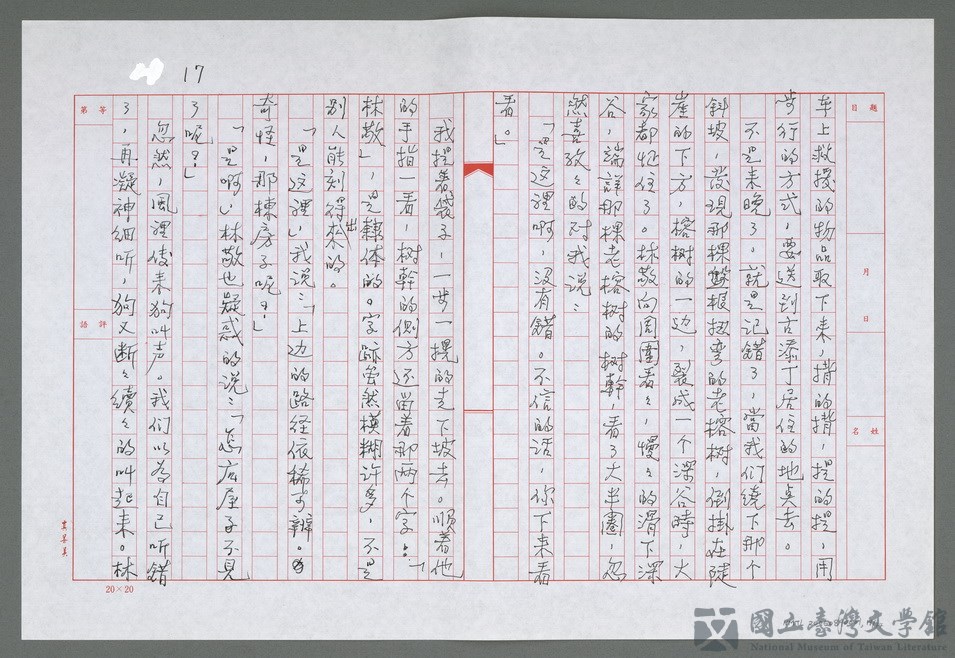 17
題目
月日
姓名
車上救援的物品取下來,揹的揹,提的提,用
步行的方式,要送到古添丁居住的地点去。
不是來晚了。就是记錯了,當我们繞下那个
斜坡,发現那棵盤根扭弯的老榕树,倒掛在陡
崖的下方,榕树的一边,裂成一个深谷時,大
家都怔住了。林敬向周圍看々,慢々的滑下深
谷,端詳那棵老榕树的树幹,看了大半圈,忽
然喜孜々的对我说:
「是这裡啊,沒有錯。不信的话,你下來看
看。」
我提着袋子,一步一拐的走下坡去。順着他
的手指一看,树幹的側方还留着那两个字:「
林敬」,是隸体的。字跡虽然模糊许多,不是
别人能刻得出來的。
「是这裡,」我说:「上边的路径依稀可辦。
奇怪,那棟房子呢?」
「是啊,」林敬也疑惑的说:「怎麼屋子不見
了呢?」
忽然,風裡傳來狗叫声。我们以為自己听錯
了,再凝神细听,狗又断々續々的叫起來。林
第等
評語
20×20
國立臺灣文学館
National Museum of Taiwan Literature